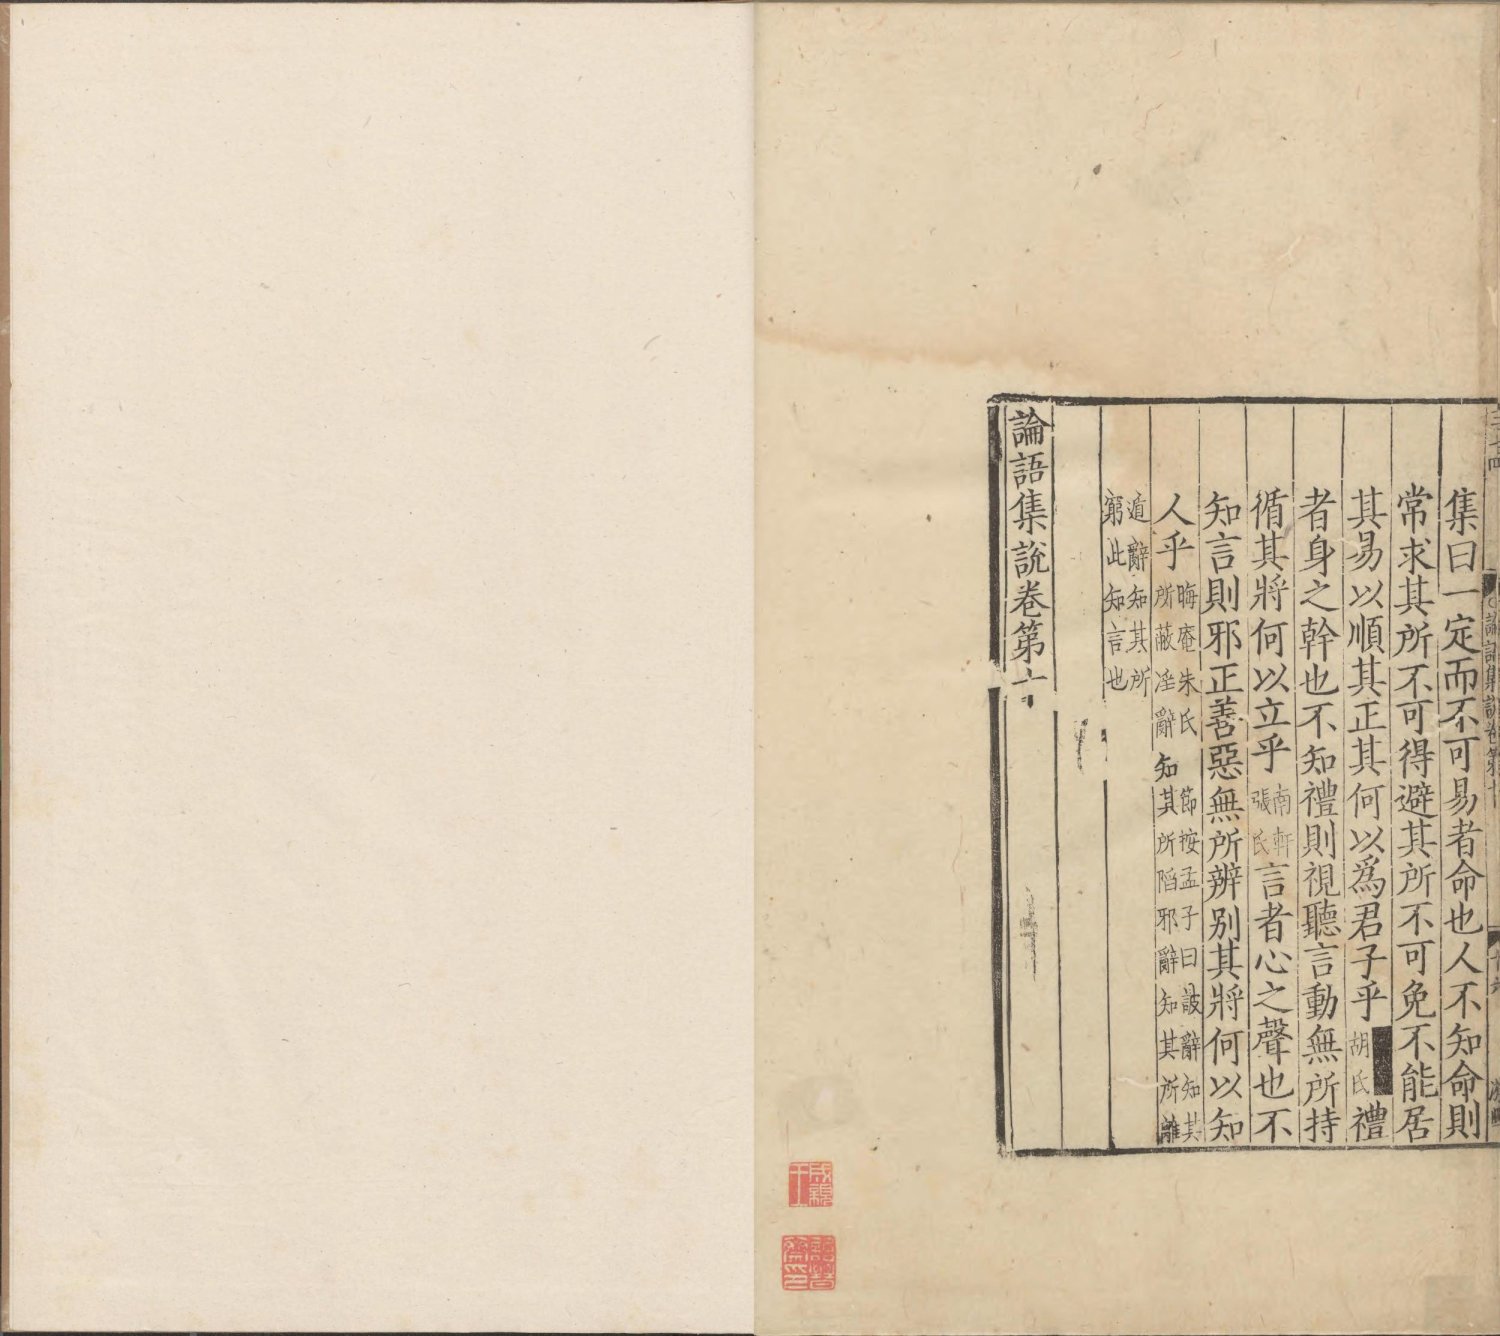 集曰一定而不可易者命也人不知命則
常求其所不可得避其所不可免不能居
其易以順其正其何以爲君子乎胡氏禮
者身之幹也不知禮則視聽言動無所持
循其將何以立乎南軒張氏言者心之聲也不
知言則邪正善惡無所辨别其將何以知
人乎晦庵朱氏節按孟子曰詖辭知其
所蔽淫辭知其所陷邪辭知其所離
遁辭知其所
窮此知言也
論語集說卷第十
成親王
詒晉齋印